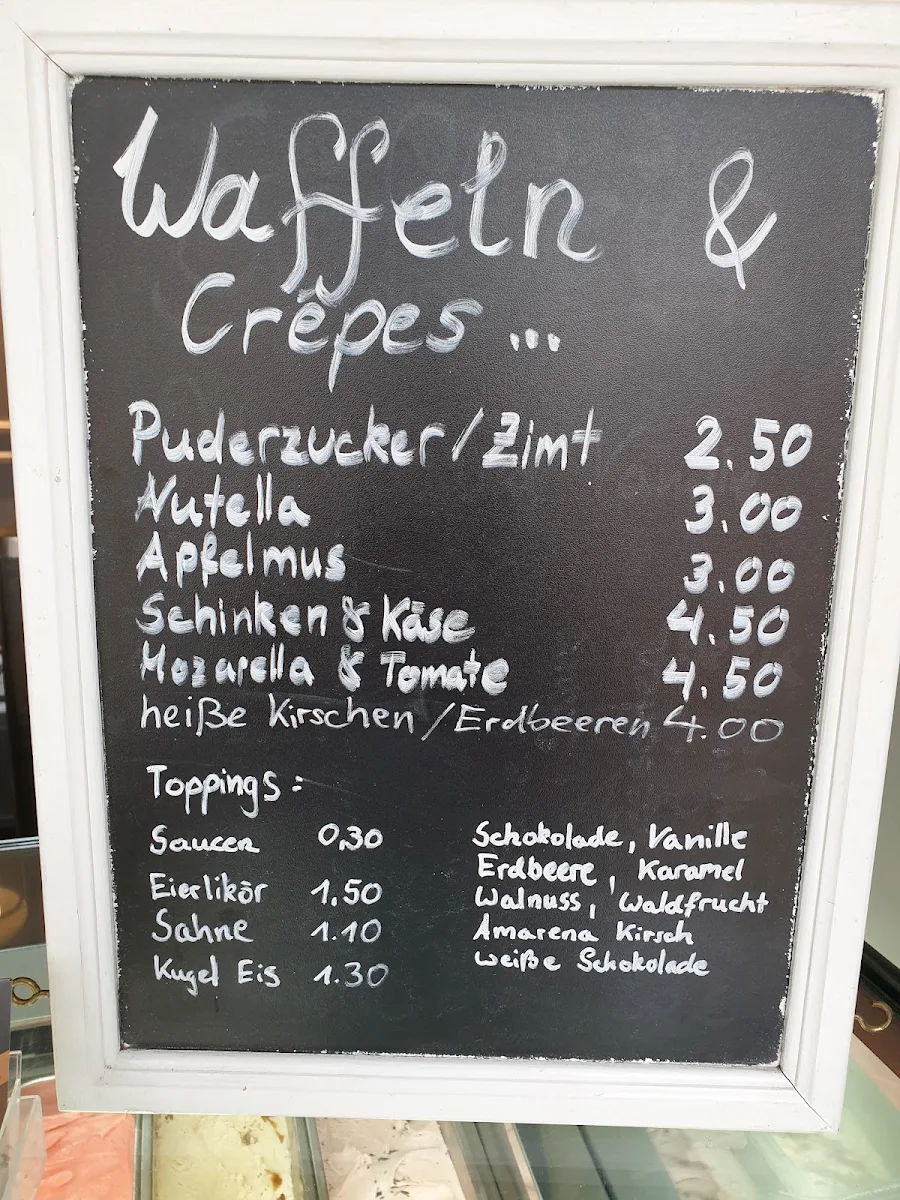 Waffeln &
Crêpes ...
Puderzucker/Zimt 2.50
Nutella 3.00
Apfelmus 3.00
Schinken & Käse 4.50
Mozarella & Tomate 4.50
heiße Kirschen/Erdbeeren 4.00
Toppings:
Saucen 0,30 Schokolade, Vanille
Erdbeere, Karamel
Eierlikör 1.50 Walnuss, Waldfrucht
Sahne 1.10 Amarena Kirsch
weiße Schokolade
Kugel Eis 1.30